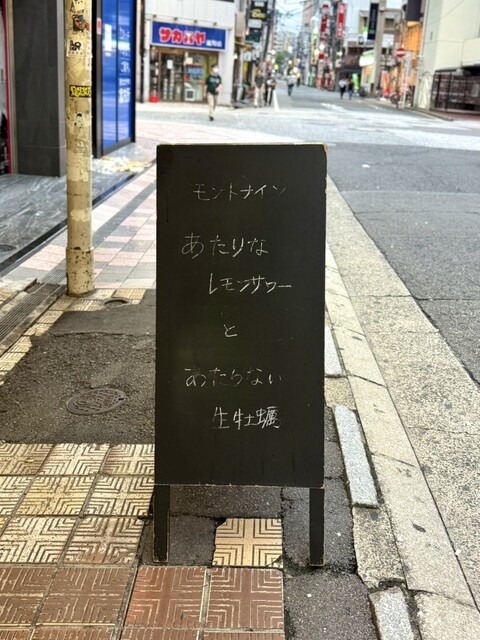 サカゼン
モントナイン
あたりな
レモンサワー
と
あたらない
生牡蠣